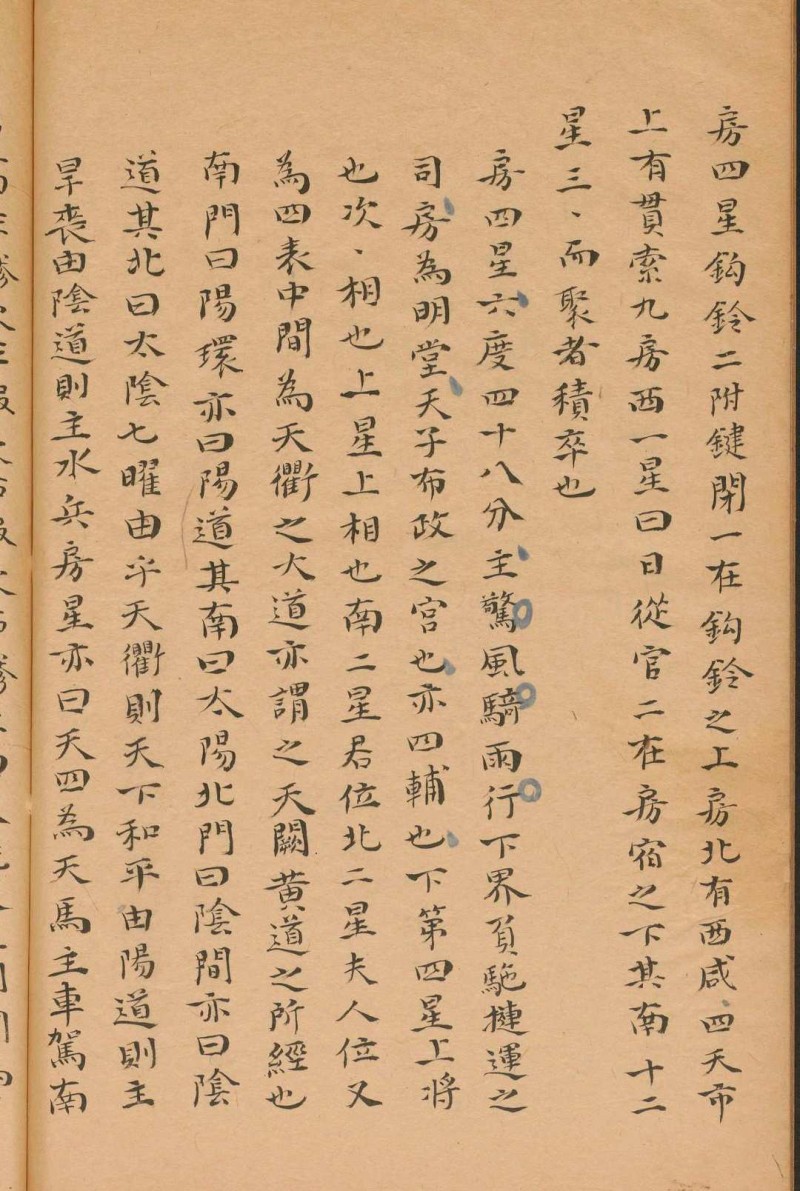 房四星鈎鈴二附鍵閉一在鈎鈴之上房北有西咸四天市
上有貫索九房西一星曰日從官二在房宿之下其南十二
星三、而聚者積卒也
房四星六度四十八分主驚風騎雨行下界負馳摙運之
司房為明堂天子布政之宮也亦四輔也下第四星上將
也次、相也上星上相也南二星君位北二星夫人位又
為四表中間為天衢之大道亦謂之天闕黃道之所經也
南門曰陽環亦曰陽道其南曰太陽北門曰陰間亦曰陰
道其北曰太陰七曜由乎天衢則天下和平由陽道則主
旱喪由陰道則主水兵房星亦曰天四為天馬主車駕南